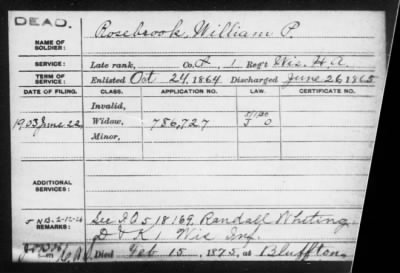 DEAD.
NAME OF SOLDIER: Rosebrook, William P.
SERVICE: Late rank, Co. L, 1 Reg't Wis. H. A.
TERM OF SERVICE: Enlisted Oct 24, 1864 Discharged June 26, 1865
DATE OF FILING. CLASS. APPLICATION NO. LAW. CERTIFICATE NO.
Invalid,
1903 June 22 Widow, 786,727
Minor,
ADDITIONAL SERVICES:
REMARKS: See 518169, Randall Whiting,
D & K 1 Wis Inf.
Died Feb 15, 1875, at Bluffton